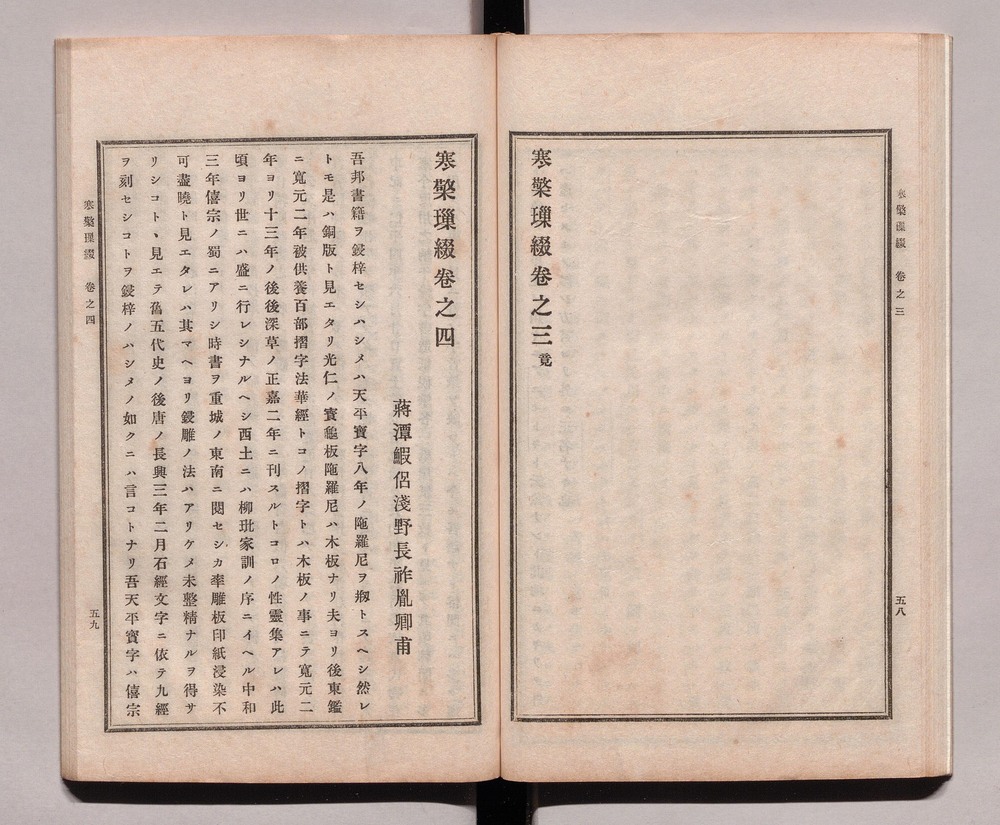 寒檠璅綴 卷之三
五八
寒檠璅綴卷之三竟
寒檠璅綴卷之四
蔣潭鰕侶淺野長祚胤卿甫
吾邦書籍ヲ鋟梓セシハシメハ天平寶字八年ノ陁羅尼ヲ刱トスヘシ然レ
トモ是ハ銅版ト見エタリ光仁ノ寶龜板陁羅尼ハ木板ナリ夫ヨリ後東鑑
ニ寬元二年被供養百部摺字法華經トコノ摺字トハ木板ノ事ニテ寬元二
年ヨリ十三年ノ後後深草ノ正嘉二年ニ刊スルトコロノ性靈集アレハ此
頃ヨリ世ニハ盛ニ行レシナルヘシ西土ニハ柳玭家訓ノ序ニイヘル中和
三年僖宗ノ蜀ニアリシ時書ヲ重城ノ東南ニ閱セシカ率雕板印紙浸染不
可盡曉ト見エタレハ其マヘヨリ鋟雕ノ法ハアリケメ未整精ナルヲ得サ
リシコトヽ見エテ舊五代史ノ後唐ノ長興三年二月石經文字ニ依テ九經
ヲ刻セシコトヲ鋟梓ノハシメノ如クニハ言コトナリ吾天平寶字ハ僖宗
寒檠璅綴 卷之四
五九